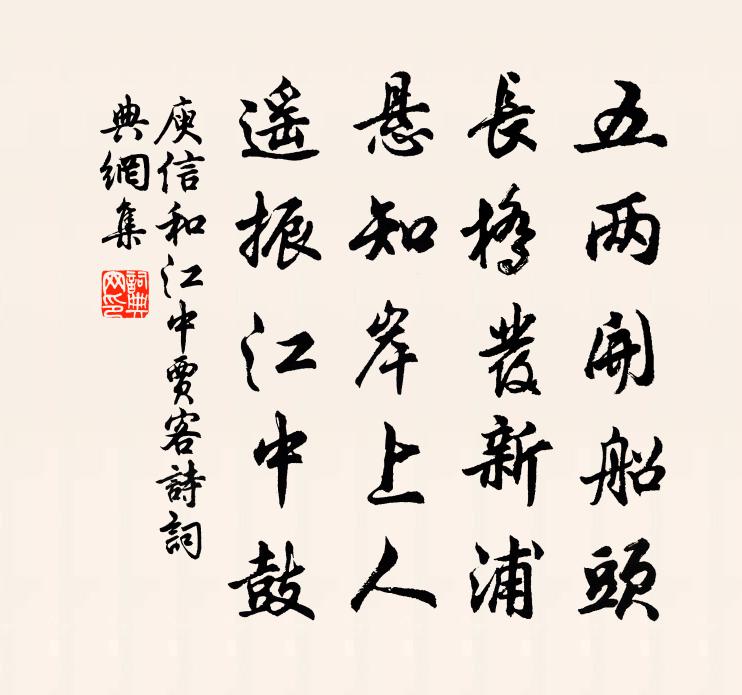 五两開船頭
長橋發新浦
懸知岸上人
遥振江中鼓
庾信和江中賈客詩詞
典網集
詞典
网印